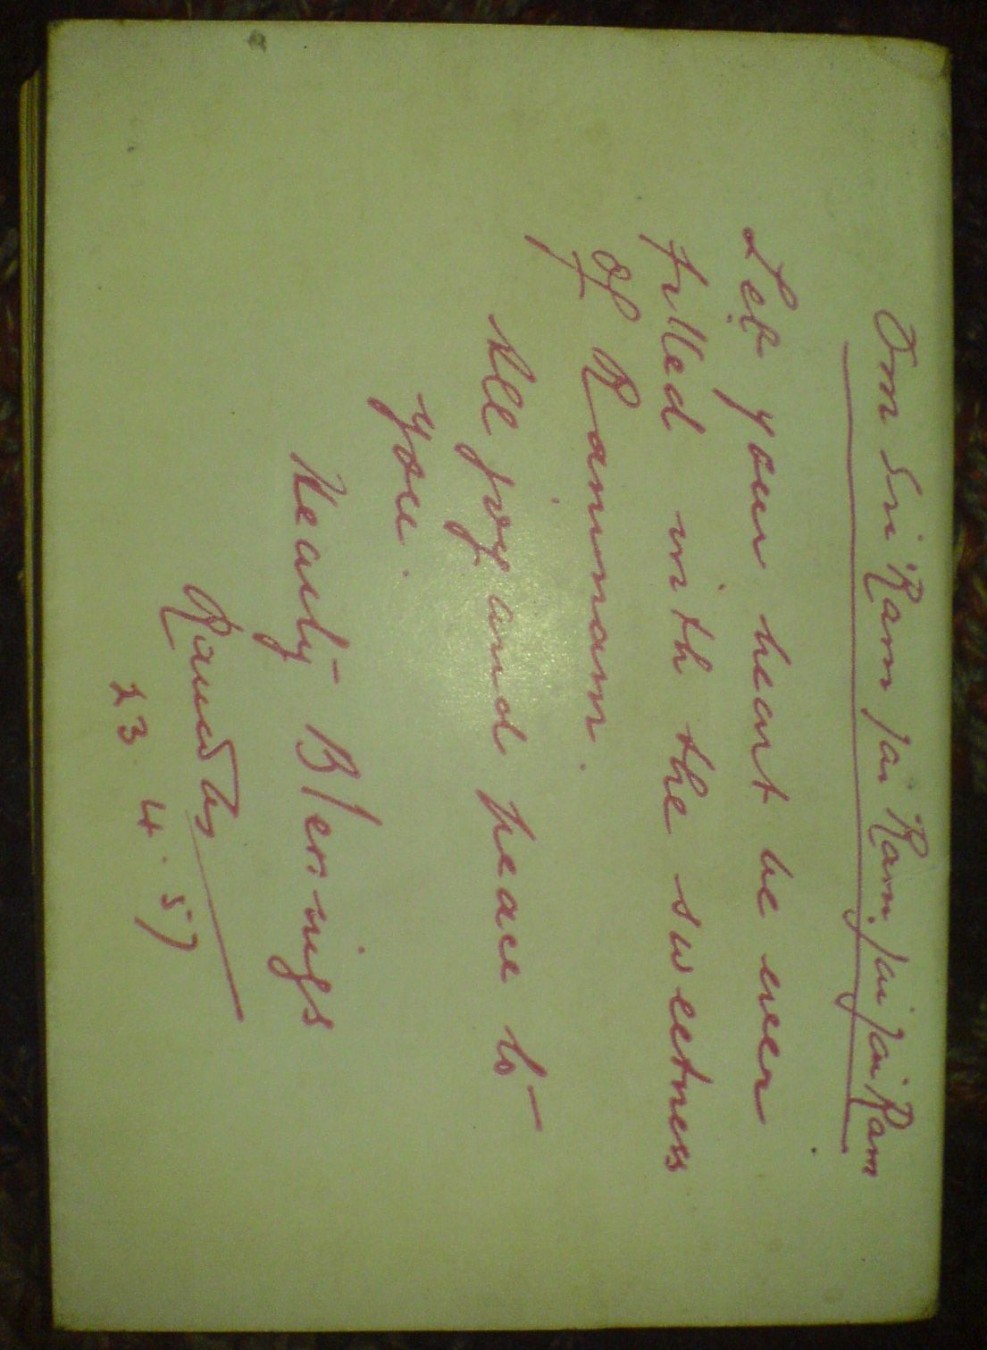 Om Sri Ram jai Ram jai jai Ram
Let your heart be ever
filled with the sweetness
of Ramnam.
All joy and peace to
you.
Hearty Blessings
Ramdas
23 4. 57